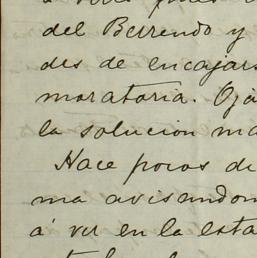 á otro
del Berrendo y
des de encajars
moratoria. Ojá
la solucion ma
Hace pocos di
ma avisandom
á ver en la esta